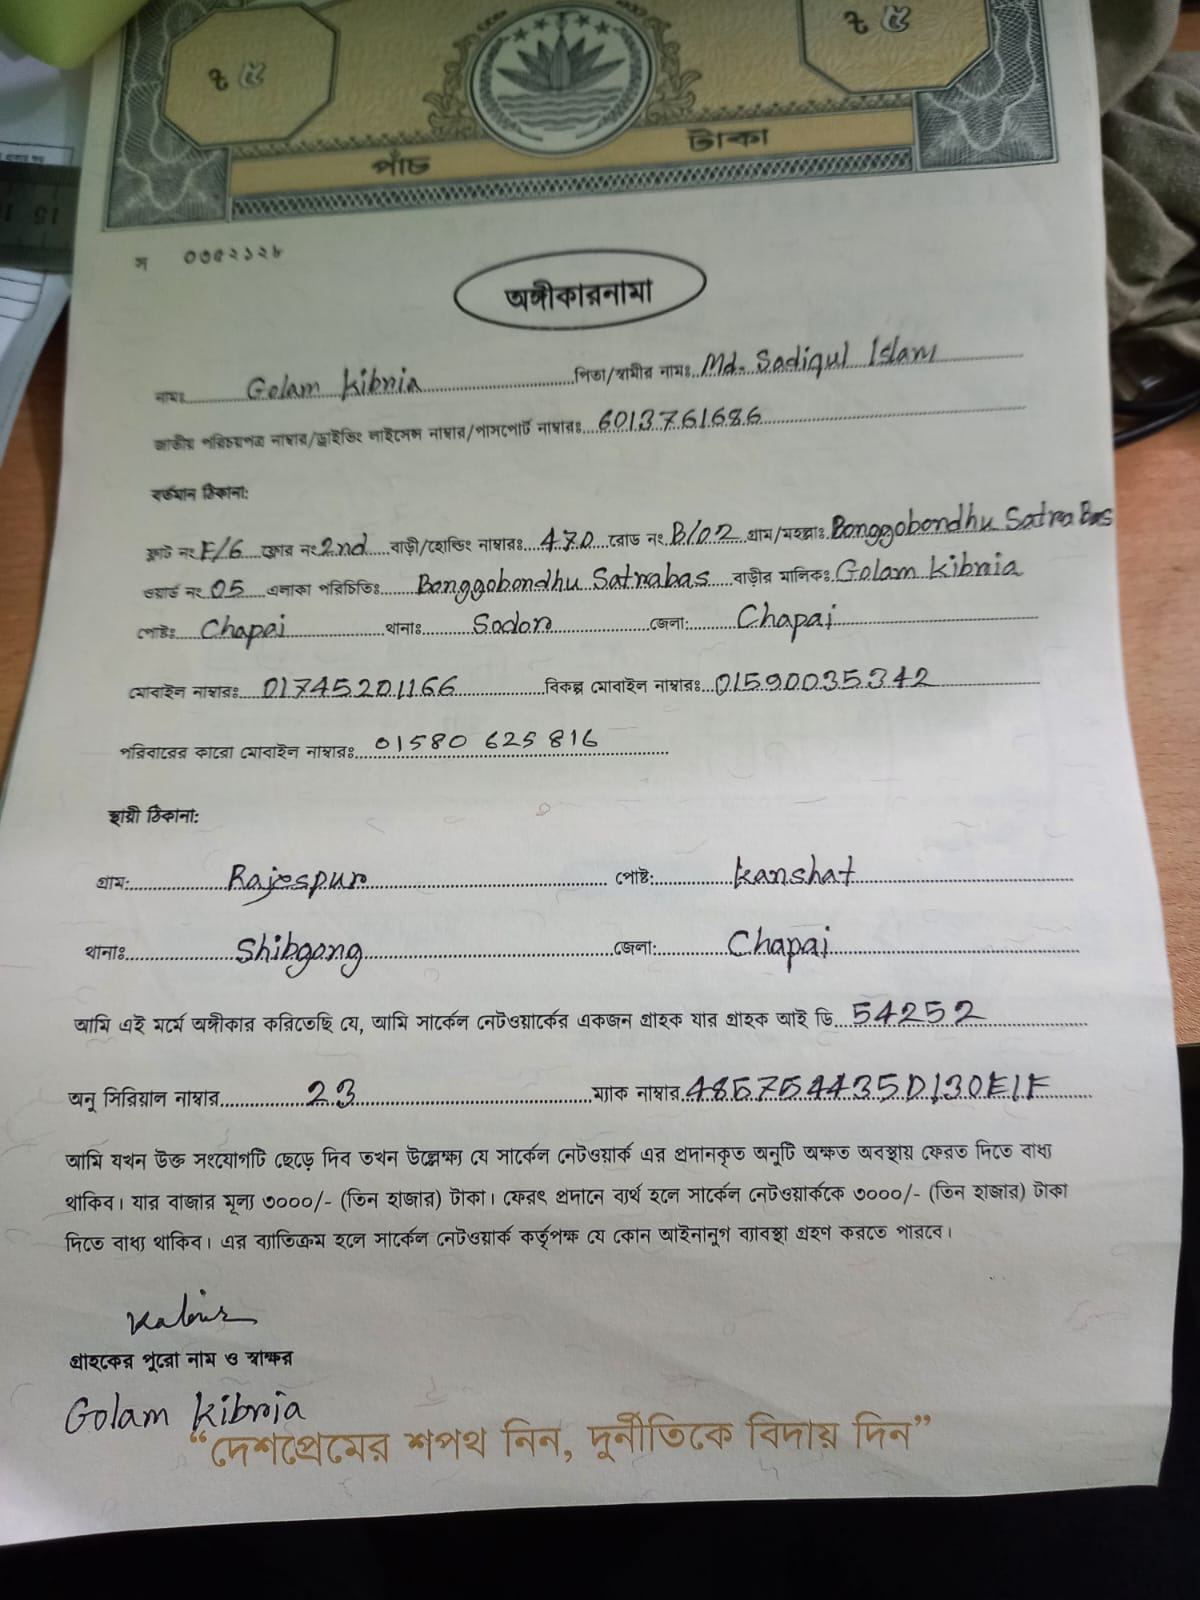 ৳ ৫ ৳ ৫
পাঁচ টাকা
স ০৩৫২১২৮
অঙ্গীকারনামা
নামঃ Golam Kibria পিতা/স্বামীর নামঃ Md. Sadiqul Islam
জাতীয় পরিচয়পত্র নাম্বার/ড্রাইভিং লাইসেন্স নাম্বার/পাসপোর্ট নাম্বারঃ 6013761686
বর্তমান ঠিকানা:
ফ্লাট নং E/6 ফ্লোর নং 2nd বাড়ী/হোল্ডিং নাম্বারঃ 470 রোড নং B/02 গ্রাম/মহল্লাঃ Bonggobondhu Satra Bas
ওয়ার্ড নং 05 এলাকা পরিচিতিঃ Bonggobondhu Satrabas বাড়ীর মালিকঃ Golam Kibria
পোষ্টঃ Chapai থানাঃ Sodor জেলা: Chapai
মোবাইল নাম্বারঃ 01745201166 বিকল্প মোবাইল নাম্বারঃ 01590035342
পরিবারের কারো মোবাইল নাম্বারঃ 01580 625 816
স্থায়ী ঠিকানা:
গ্রাম: Rajespur পোষ্ট: Kanshat
থানাঃ Shibgong জেলা: Chapai
আমি এই মর্মে অঙ্গীকার করিতেছি যে, আমি সার্কেল নেটওয়ার্কের একজন গ্রাহক যার গ্রাহক আই ডি 54252
অনু সিরিয়াল নাম্বার 23 ম্যাক নাম্বার 485754435D130E1F
আমি যখন উক্ত সংযোগটি ছেড়ে দিব তখন উল্লেক্ষ্য যে সার্কেল নেটওয়ার্ক এর প্রদানকৃত অনুটি অক্ষত অবস্থায় ফেরত দিতে বাধ্য
থাকিব। যার বাজার মূল্য ৩০০০/- (তিন হাজার) টাকা। ফেরৎ প্রদানে ব্যর্থ হলে সার্কেল নেটওয়ার্ককে ৩০০০/- (তিন হাজার) টাকা
দিতে বাধ্য থাকিব। এর ব্যাতিক্রম হলে সার্কেল নেটওয়ার্ক কর্তৃপক্ষ যে কোন আইনানুগ ব্যাবস্থা গ্রহণ করতে পারবে।
গ্রাহকের পুরো নাম ও স্বাক্ষর
Golam Kibria
“দেশপ্রেমের শপথ নিন, দুর্নীতিকে বিদায় দিন”